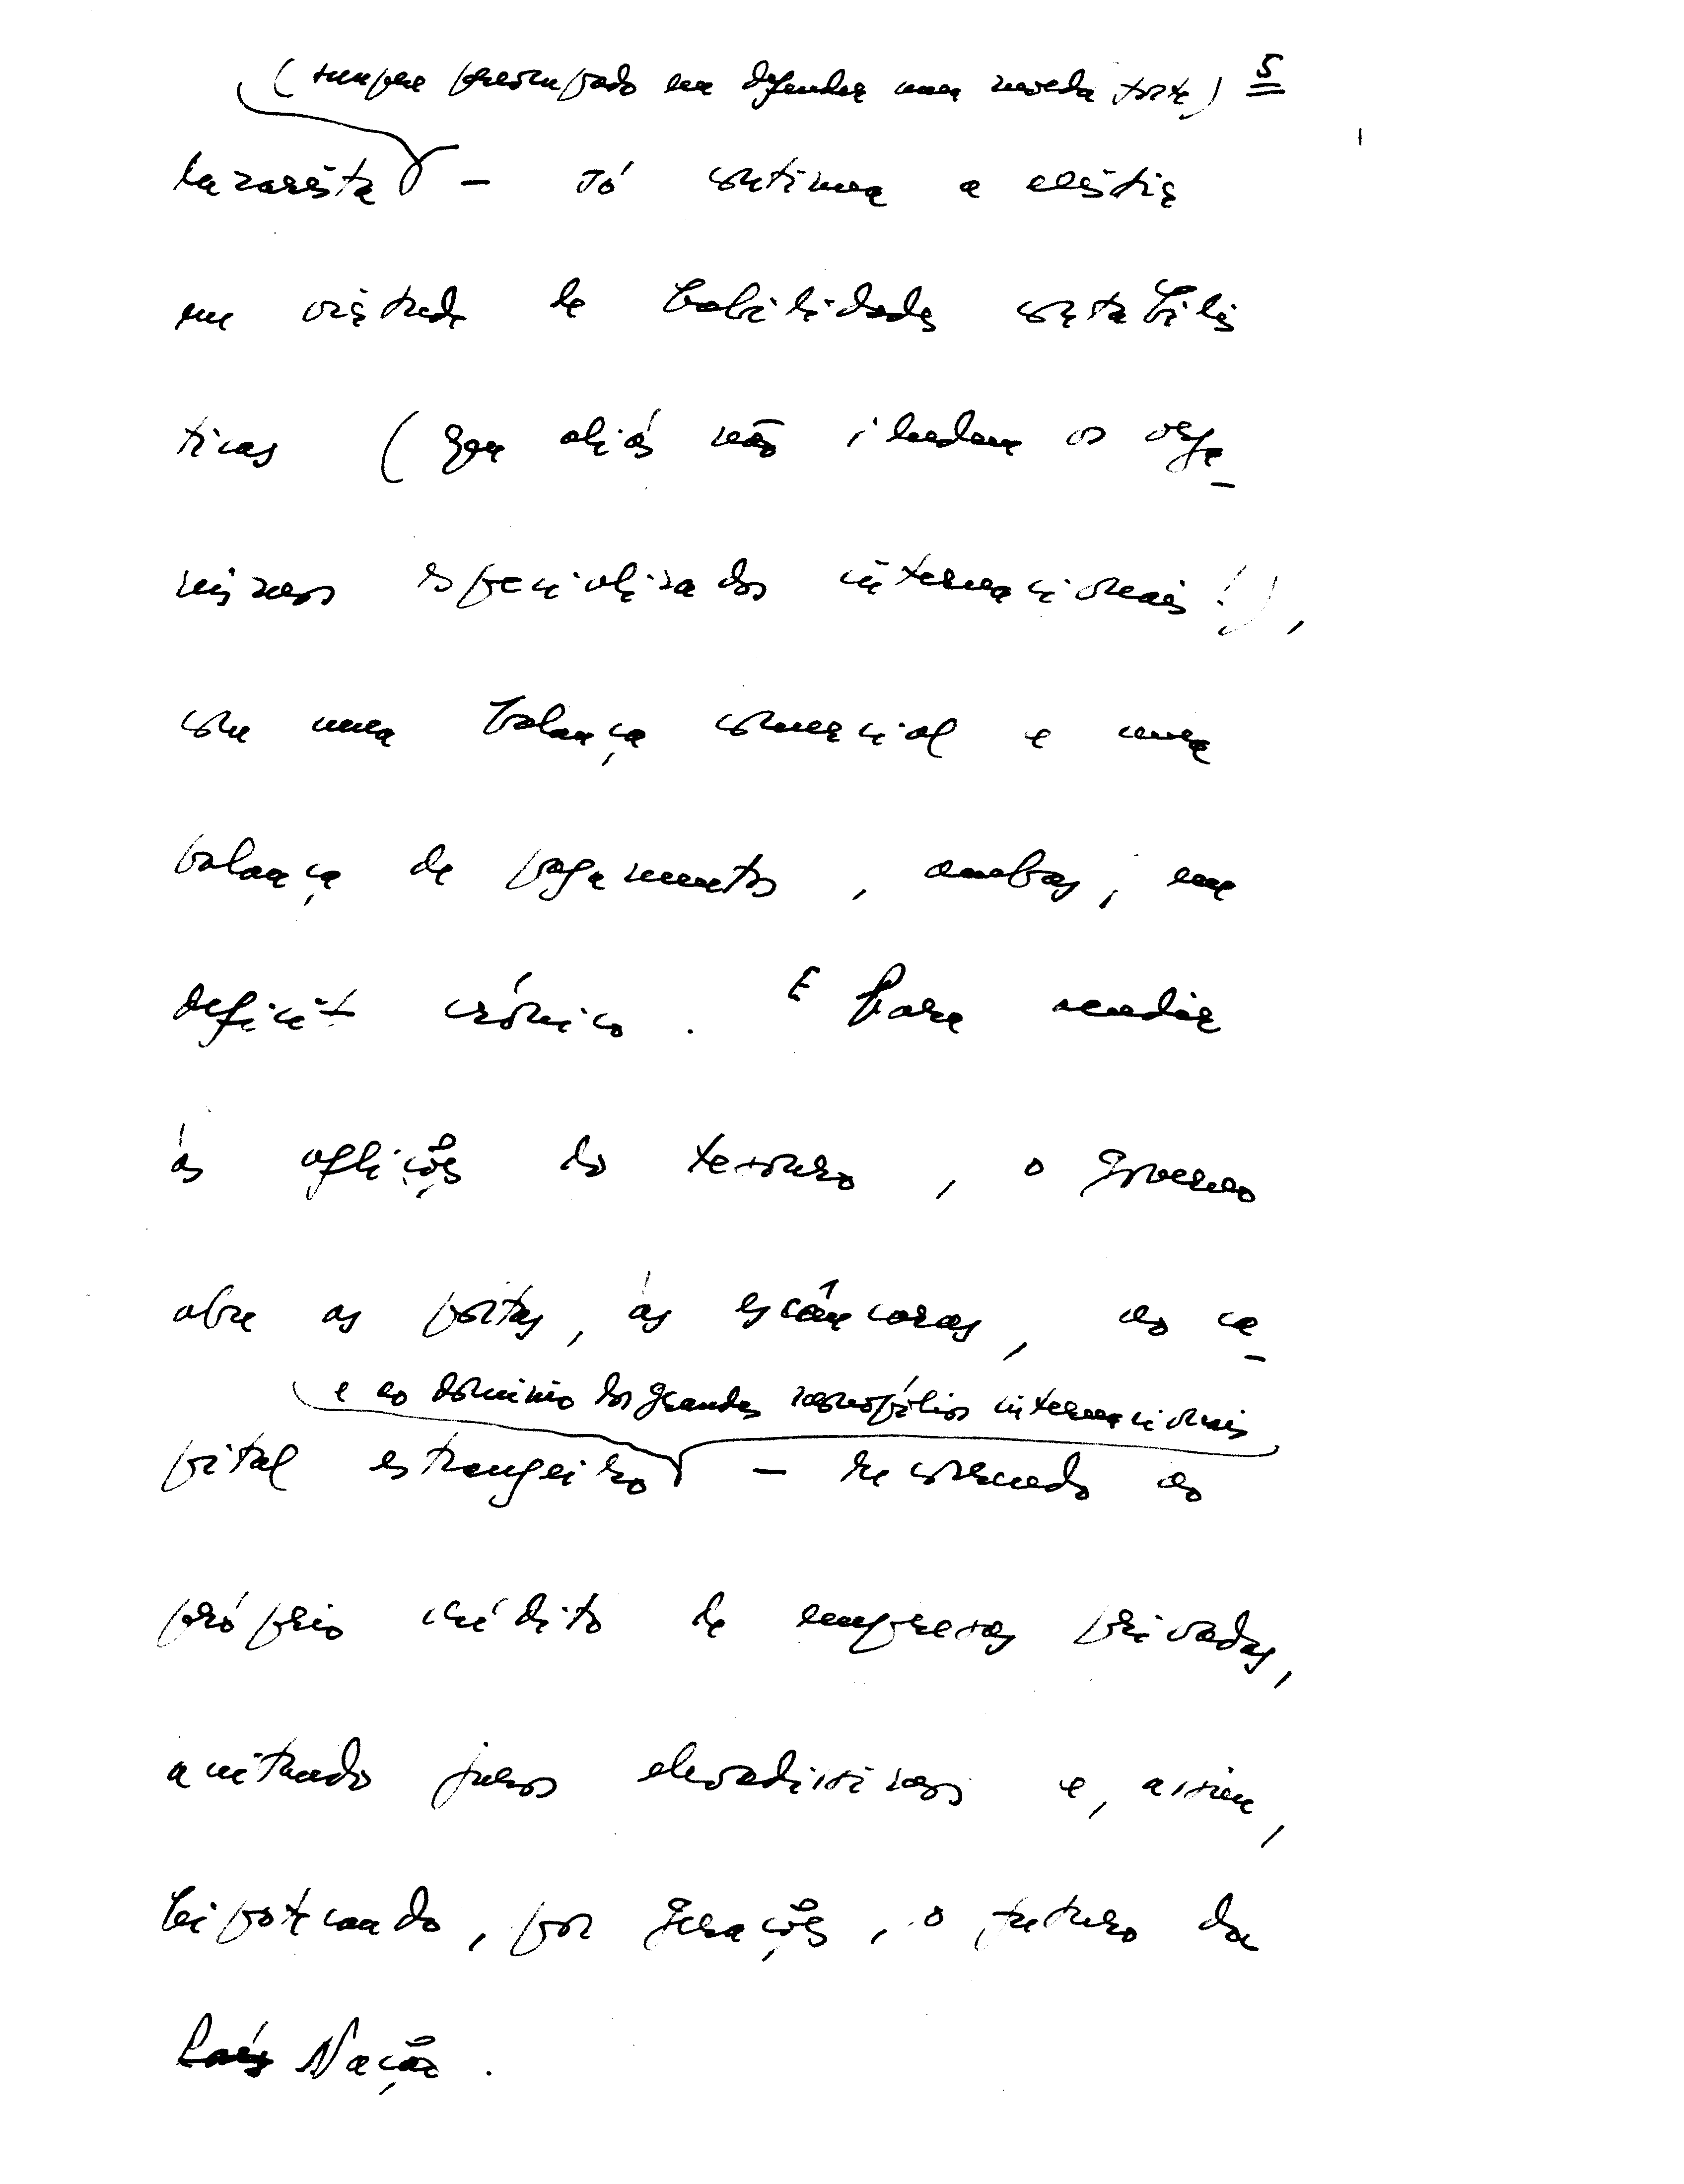 (sempre preocupado em defender uma moeda forte) 5
lazarista – só continua a existir
em virtude de habilidades contabilis
ticas (que aliás não iludem os orga-
nismos especializados internacionais!),
com uma balança comercial e uma
balança de pagamentos, ambas, em
deficit crónico. E para acudir
às aflições do tesouro, o governo
abre as portas, às escâncaras, ao ca-
e ao dominio dos grandes monopólios internacionais
pital estrangeiro – recorrendo ao
próprio crédito de empresas privadas,
aceitando juros elevadissimos e, assim,
hipotecando, por gerações, o futuro da
País Nação.